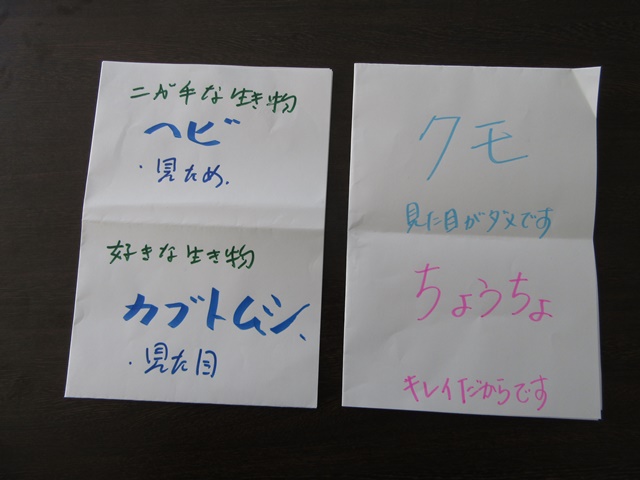 ニガ手な生き物
ヘビ
・見ため.
好きな生き物
カブトムシ、
・見た目
クモ
見た目がダメです
ちょうちょ
キレイだからです